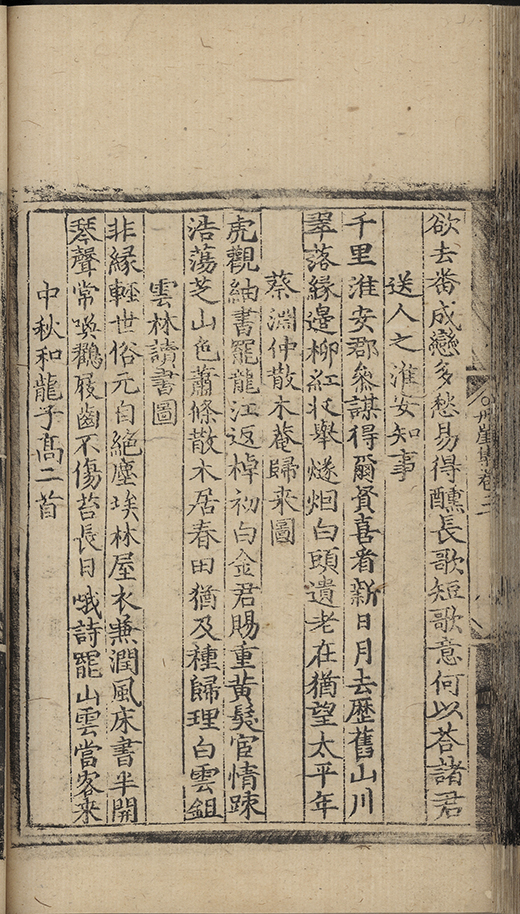 欲去番成戀多愁易得醺長歌短歌意何以荅諸君
送人之淮安知事
千里淮安郡叅謀得爾賢喜看新日月去歷舊山川
翠落緣邉柳紅收舉燧烟白頭遺老在猶望太平年
蔡淵仲散木菴歸来圖
虎觀紬書罷龍江返棹初白金君賜重黄髮宦情踈
浩蕩芝山色蕭條散木居春田猶及種歸理白雲鉏
雲林讀書圖
非緣輕世俗元自絶塵埃林屋衣兼潤風床書半開
琴聲常喚鸛屐齒不傷苔長日哦詩罷山雲當客来
中秋和龍子髙二首